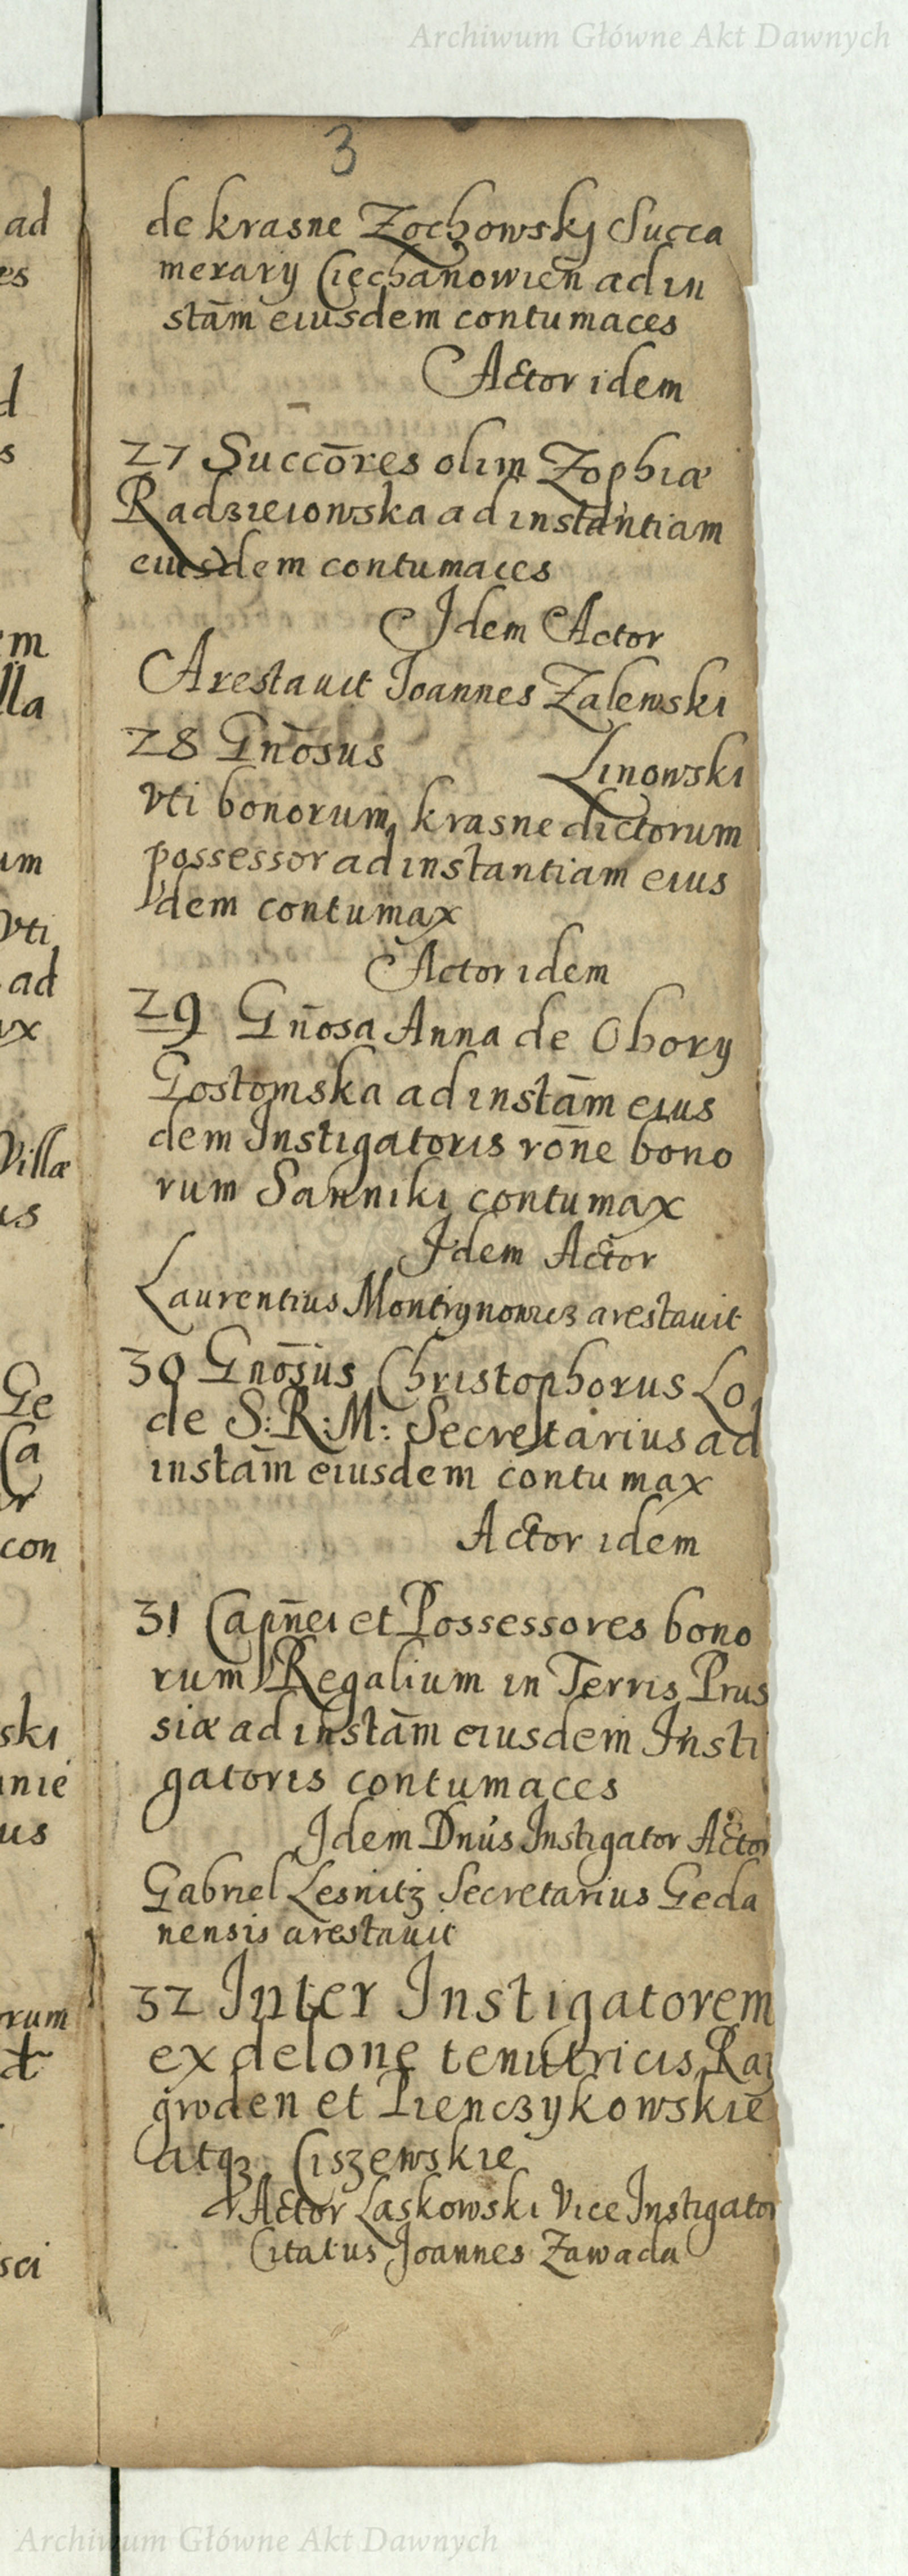 Archiwum Główne Akt Dawnych
3
de krasne Zochowskj Succa
merarÿ Ciechanowien̄ ad in
stām eiusdem contumaces
Actor idem
27 Succōres olim Zophiæ
Radzieiowska ad instantiam
eiusdem contumaces
Idem Actor
Arestauit Ioannes Zalewski
28 Gn̄osus Linowski
vti bonorum krasne dictorum
possessor ad instantiam eius
dem contumax
Actor idem
29 Gn̄osa Anna de Obory
Gostomska ad instām eius
dem Instigatoris rōne bono
rum Sanniki contumax
Idem Actor
Laurentius Montrynowicz arestauit
30 Gn̄osus Christophorus Lo
de S: R: M: Secretarius ad
instām eiusdem contumax
Actor idem
31 Capn̄ei et Possessores bono
rum Regalium in Terris Prus
siæ ad instām eiusdem Insti
gatoris contumaces
Idem Dnūs Instigator Actor
Gabriel Lesnitz Secretarius Geda
nensis arestauit
32 Inter Instigatorem
ex delone tenutricis Rai
grođen et Pienczykowskie
atqz Ciszewskie
Actor Laskowski Vice Instigator
Citatus Joannes Zawada
ad
es
d
s
em
lla
um
Vti
ad
ax
Villæ
us
Ge
Ca
or
con
ski
anie
us
orum
sci
Archiwum Główne Akt Dawnych